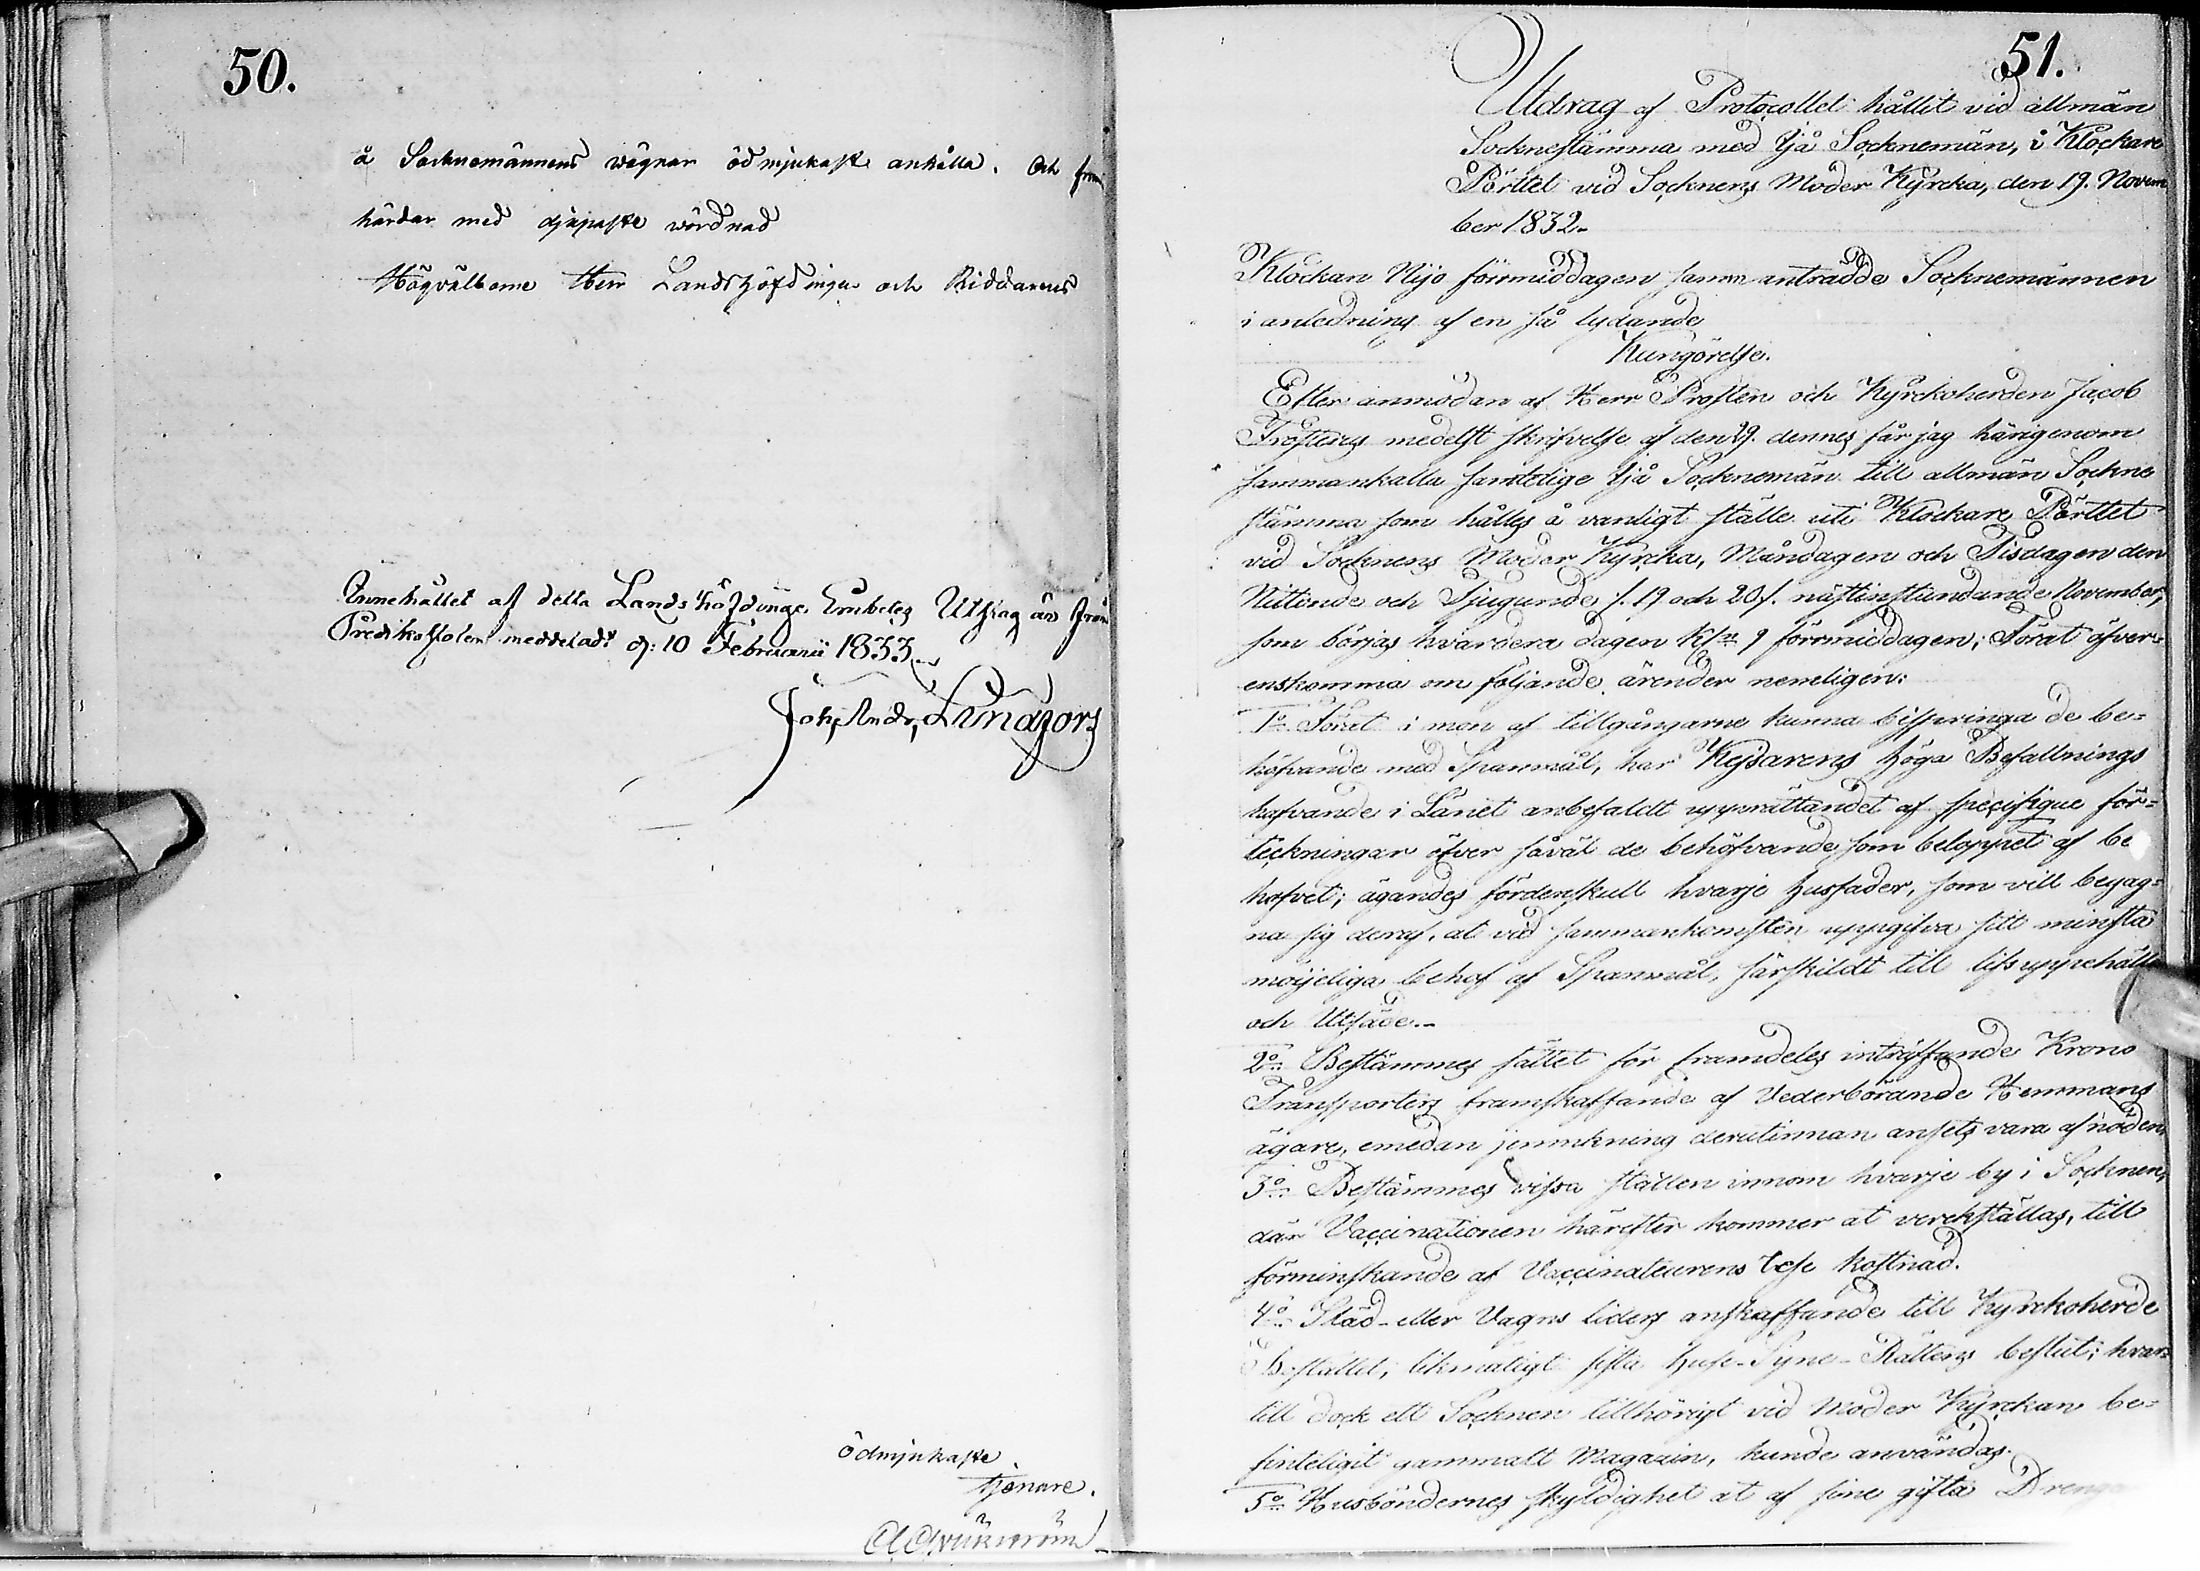 50.
å Socknemännens vägnar ödmjukast anhålla. Och fram
härdar med djupaste wördnad
Högvälborne Herr Landshöfdinges och Riddarens
Innehållet af detta Landshöfdinge Embetes Utslag är från
Predikostolen meddeladt d: 10 Februarii 1833
Joh. Andr. Lundfors
ödmjukaste
tjenare.
51.
Utdrag af Protocollet hållit vid allmän
Socknestämma med Ijå Socknemän, i Klockare
Pörttet vid Socknens Moder Kyrcka, den 19. Novem
ber 1832.
Klockan Nijo förmiddagen samm anträdde Socknemännen
i anledning af en så lydande
Kungörelse.
Efter anmodan af Herr Prosten och Kyrckoherden Jacob
Frosterus medelst skrifvelse af den 29. dennes får jag härigenom
sammankalla samtelige Ijå Socknemän till allmän Sockne
stämma som hålles å vanligt ställe uti Klockare Pörttet
vid Socknens Moder Kyrcka, Måndagen och Tisdagen den
Nittonde och Tjugunde /. 19 och 20 /. nästinstundande November,
som börjas hvardera dagen Kl: 9 förmiddagen; Förat öfver=
enskomma om följande ärender nemligen:
1o Förat i mon af tillgångarne kunna bispringa de be=
höfvande med Spanmål, har Kejsarens höga Befallnings
hafvande i Länet anbefaldt upprättandet af specifique för=
teckningar öfver såväl de behöfvande som beloppet af be
hofvet; ägandes fördenskull hvarje husfader, som vill begag=
na sig deraf, at vid sammankomsten uppgifva sitt minsta
möjeliga behof af Spanmål, särskildt till lifsuppehälle
och Utsäde.
2o Bestämmes sättet för framdeles inträffande Krono
Transporters framskaffande af Vederbörande Hemmans
ägare, emedan jemnkning derutinnan anses vara af nöden,
3o Bestämmes vissa ställen innom hvarje by i Socknen,
där Vaccinationen härefter kommer at verckställas, till
förminskande af Vaccinateurens rese kostnad.
4o Släd- eller Vagns liders anskaffande till Kyrckoherde
Bostället, likmätigt sista Huse-Syne-Rättens beslut; hvar=
till dock ett Socknen tillhörigt vid Moder Kyrckan be=
finteligit gammalt Magazin, kunde användas.
5o Husböndernes skyldighet at af sine gifta Drengar